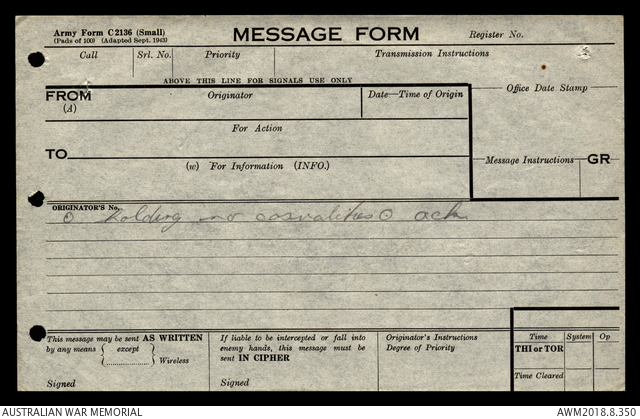 Army Form C2136 (Small)
(Pads of 100) (Adapted Sept. 1943)
MESSAGE FORM
Register No.
Call
Srl. No.
Priority
Transmission Instructions
ABOVE THIS LINE FOR SIGNALS USE ONLY
FROM
(A)
Originator
Date—Time of Origin
Office Date Stamp
For Action
TO
(W) For Information (INFO.)
Message Instructions
GR
ORIGINATOR'S No.
O holding no casualities O ack
This message may be sent AS WRITTEN
by any means { except }
Wireless
Signed
If liable to be intercepted or fall into
enemy hands, this message must be
sent IN CIPHER
Signed
Originator's Instructions
Degree of Priority
Time
System
Op
THI or TOR
Time Cleared
AUSTRALIAN WAR MEMORIAL
AWM2018.8.350